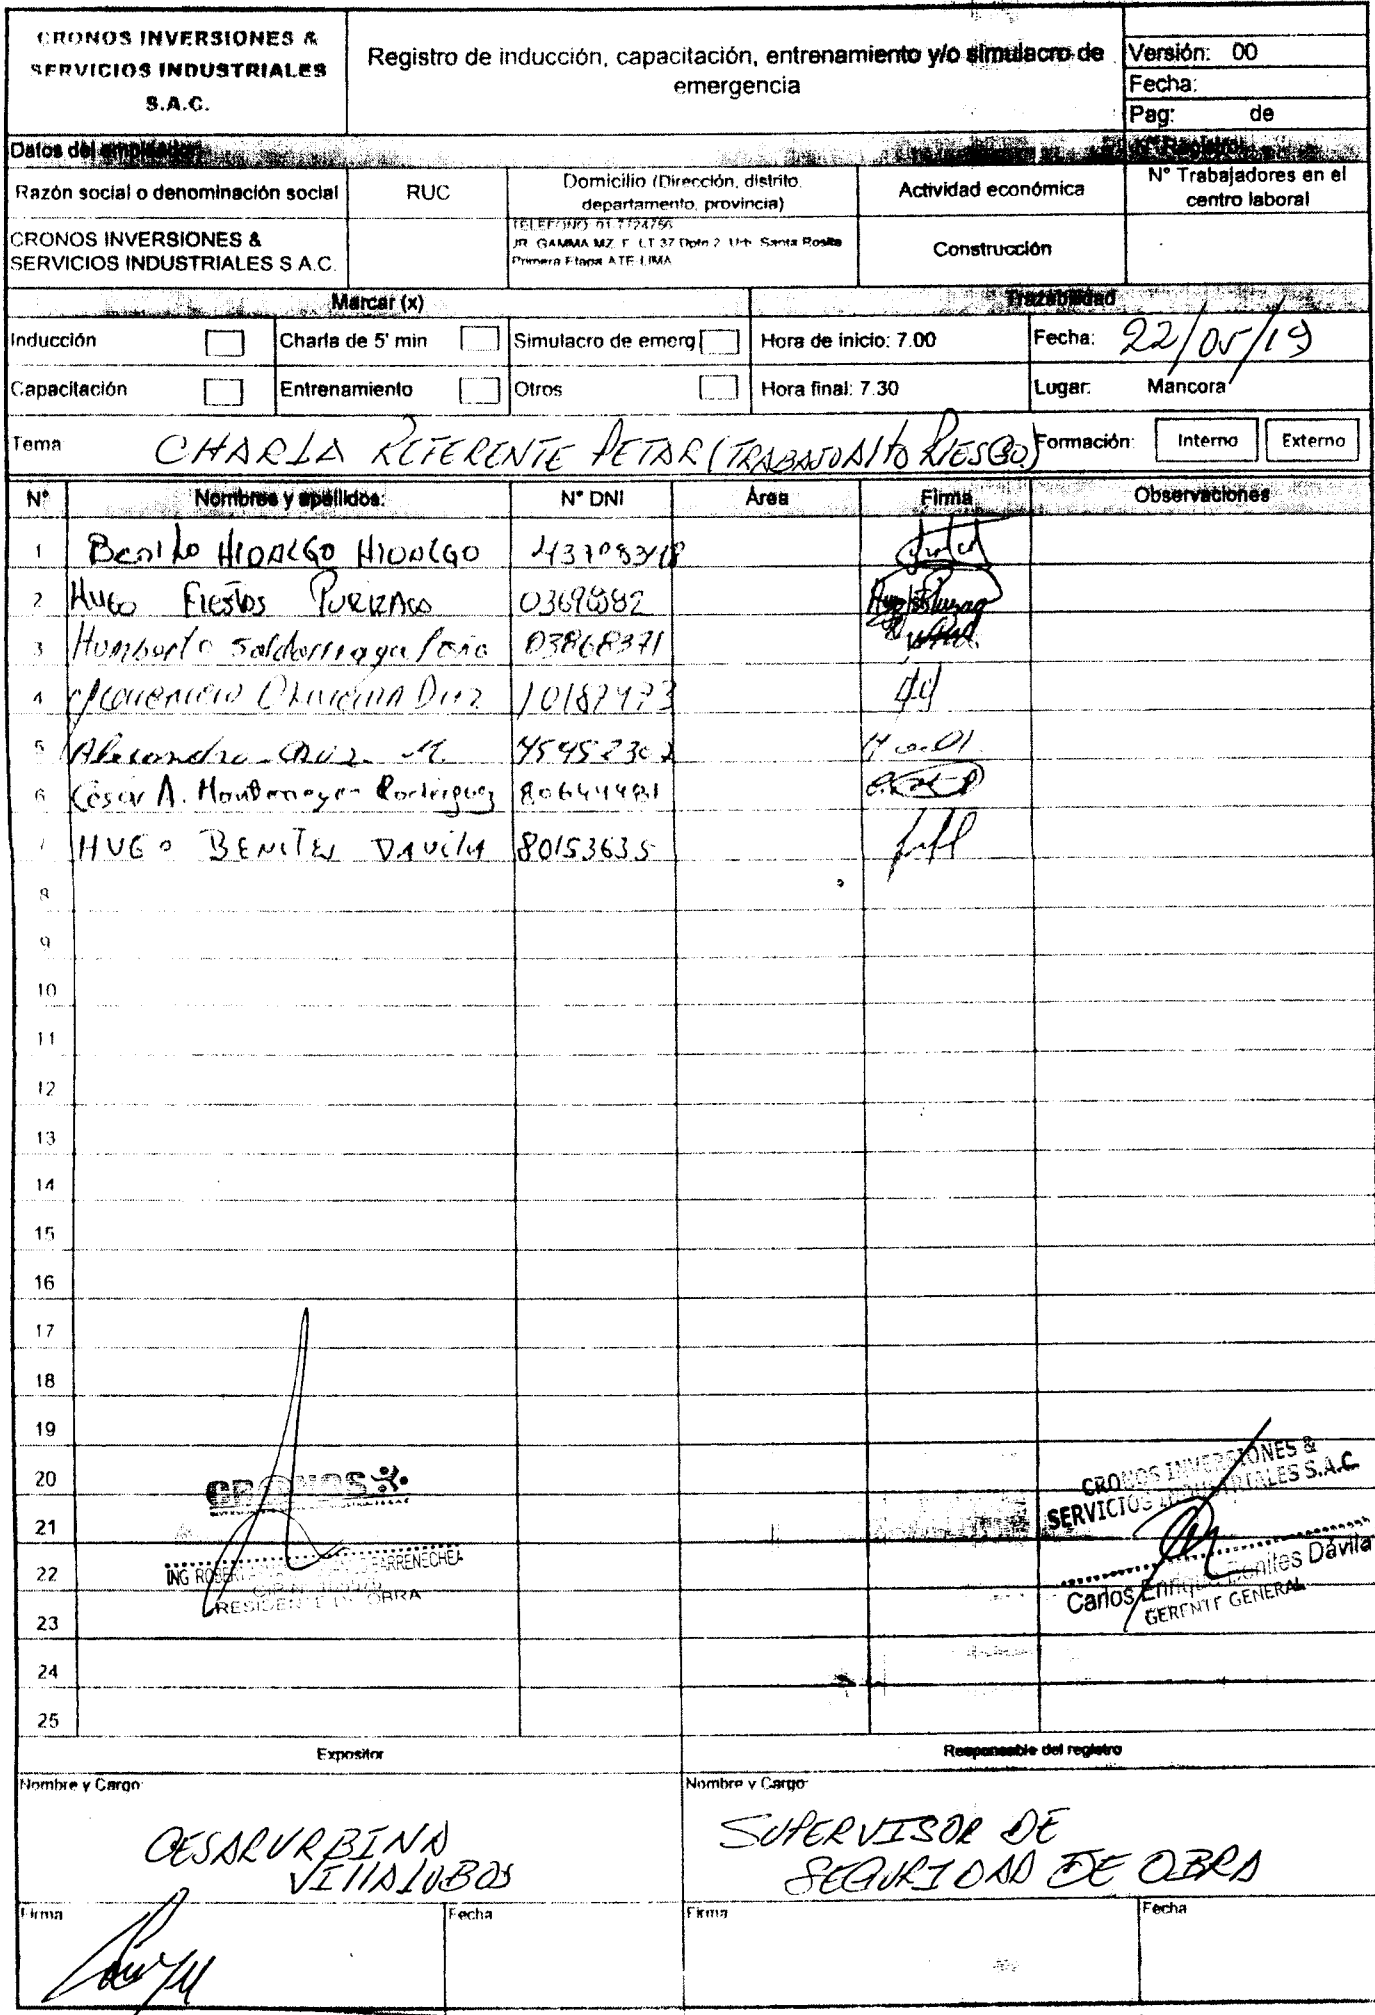 CRONOS INVERSIONES &
SERVICIOS INDUSTRIALES
S.A.C.
Registro de inducción, capacitación, entrenamiento y/o simulacro de
emergencia
Versión: 00
Fecha:
Pag: de
Datos del empleador
N° Registro
Razón social o denominación social
RUC
Domicilio (Dirección, distrito,
departamento, provincia)
Actividad económica
N° Trabajadores en el
centro laboral
CRONOS INVERSIONES &
SERVICIOS INDUSTRIALES S.A.C.
TELEFONO: 01 7724756
JR. GAMMA MZ. F. LT 37 Dpto 2. Urb. Santa Rosita
Primera Etapa ATE-LIMA
Construcción
Marcar (x)
Trazabilidad
Inducción
Charla de 5' min
Simulacro de emerg
Hora de inicio: 7.00
Fecha: 22/05/19
Capacitación
Entrenamiento
Otros
Hora final: 7.30
Lugar: Mancora
Tema CHARLA REFERENTE PETAR (TRABAJO ALTO RIESGO)
Formación: Interno Externo
N° Nombres y apellidos: N° DNI Área Firma Observaciones
1 Benito HIDALGO HIDALGO
2 HUGO
3 Humberto 03868371
4 10187473
5 Alexandro
6 Cesar A. Rodriguez 80644481
7 HUGO BENITES DAVILA 80153635
8
9
10
11
12
13
14
15
16
17
18
19
20
21
22
23
24
25
CRONOS
RESIDENTE DE OBRA
CRONOS INVERSIONES &
SERVICIOS INDUSTRIALES S.A.C.
Carlos Enrique Benites Dávila
GERENTE GENERAL
Expositor
Responsable del registro
Nombre y Cargo:
CESAR URBINA
VILLALOBOS
Nombre y Cargo:
SUPERVISOR DE
SEGURIDAD DE OBRA
Firma
Fecha
Firma
Fecha